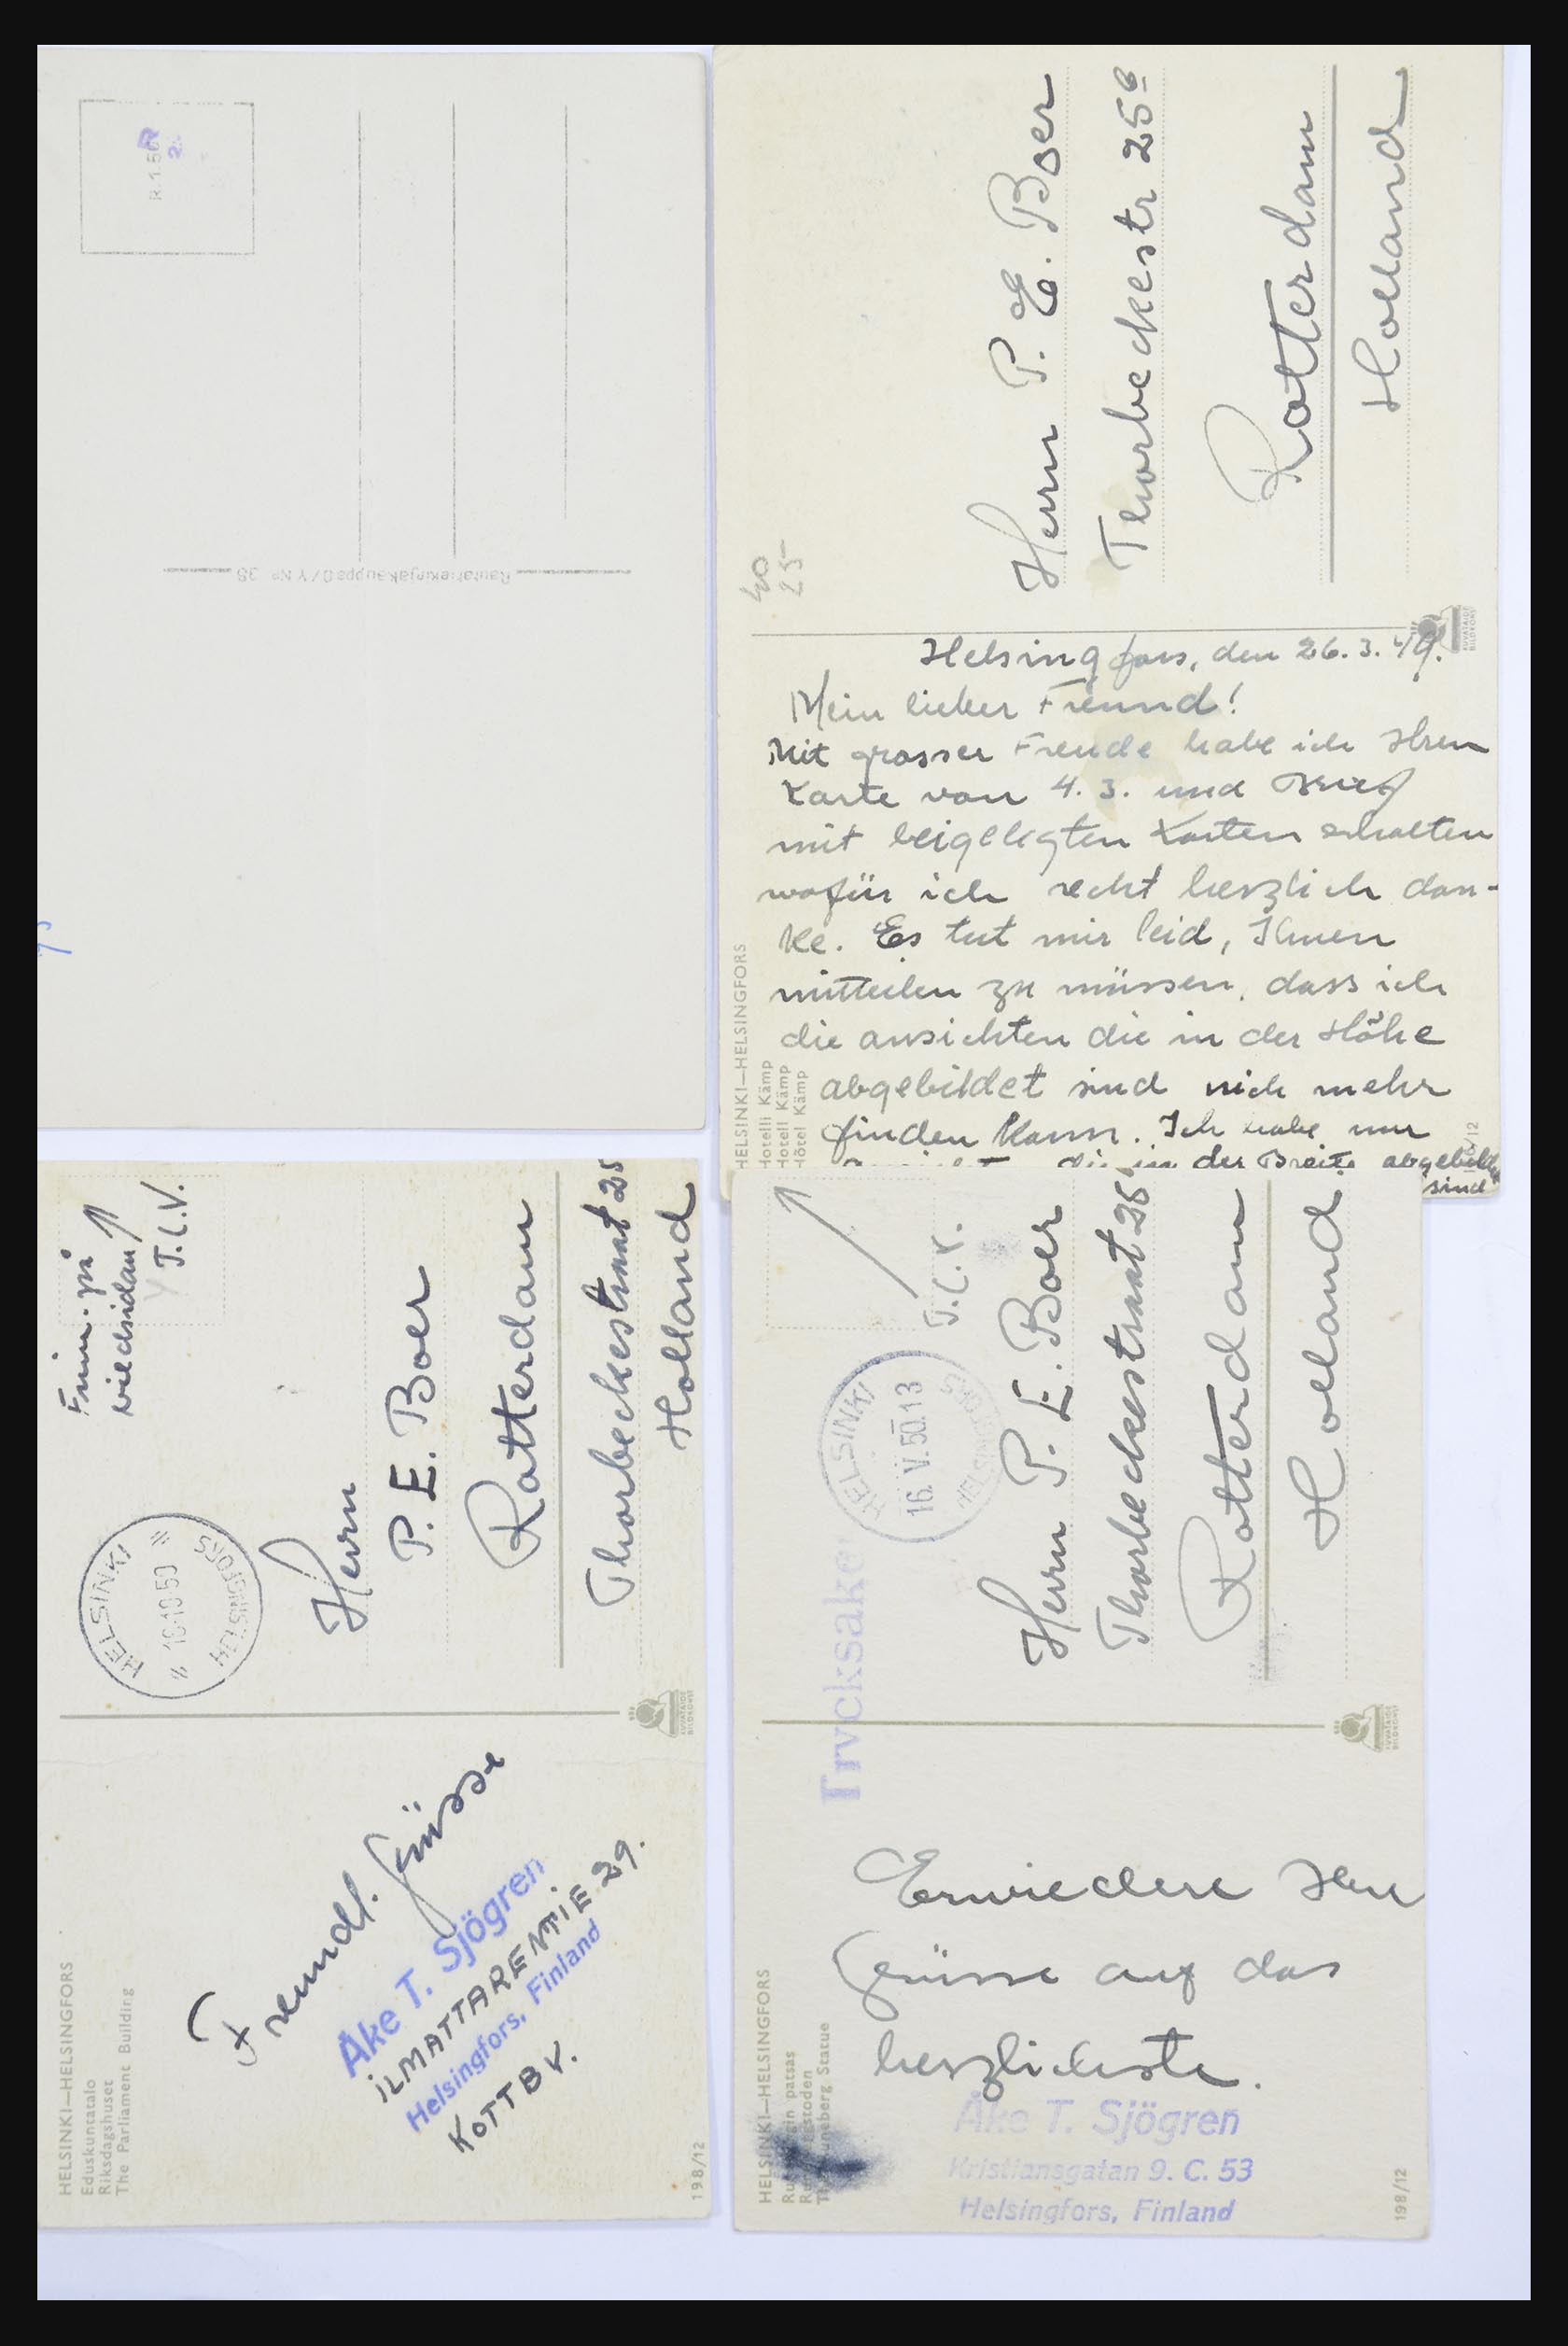 R 1.50
R
2.
Rautatiekirjakauppa O/Y No 38
40
25
Herrn P. E. Boer
Thorbeckestr 25b
Rotterdam
Holland
KUVATAIDE
BILDKONST
Helsingfors, den 26.3.49.
Mein lieber Freund!
Mit grosser Freude habe ich Ihren
Karte von 4.3. und Brief
mit beigelegten Karten erhalten
wofür ich recht herzlich dan-
ke. Es tut mir leid, Ihnen
mitteilen zu müssen, dass ich
die ansichten die in der Höhe
abgebildet sind nich mehr
finden kann. Ich habe nur
die in der Breite abgebild
sind
HELSINKI—HELSINGFORS
Hotelli Kämp
Hotell Kämp
Hôtel Kämp
/12
Frim. på
viedsidan
T.C.V.
HELSINKI
10·10·50
HELSINGFORS
Herrn
P. E. Boer
Rotterdam
Thorbeckestraat 25
Holland
KUVATAIDE
BILDKONST
Freundl. Grüsse
Åke T. Sjögren
ILMATTARENTIE 29.
Helsingfors, Finland
KOTTBY.
HELSINKI—HELSINGFORS
Eduskuntatalo
Riksdagshuset
The Parliament Building
198/12
T.C.V.
HELSINKI
16.V.50.13
HELSINGFORS
Trycksaker
Herrn P. E. Boer
Thorbeckestraat 25b
Rotterdam
Holland
KUVATAIDE
BILDKONST
Erwiedere Ihre
Grüsse auf das
herzlichste.
Åke T. Sjögren
Kristiansgatan 9. C. 53
Helsingfors, Finland
HELSINKI—HELSINGFORS
patsas
Statue
198/12